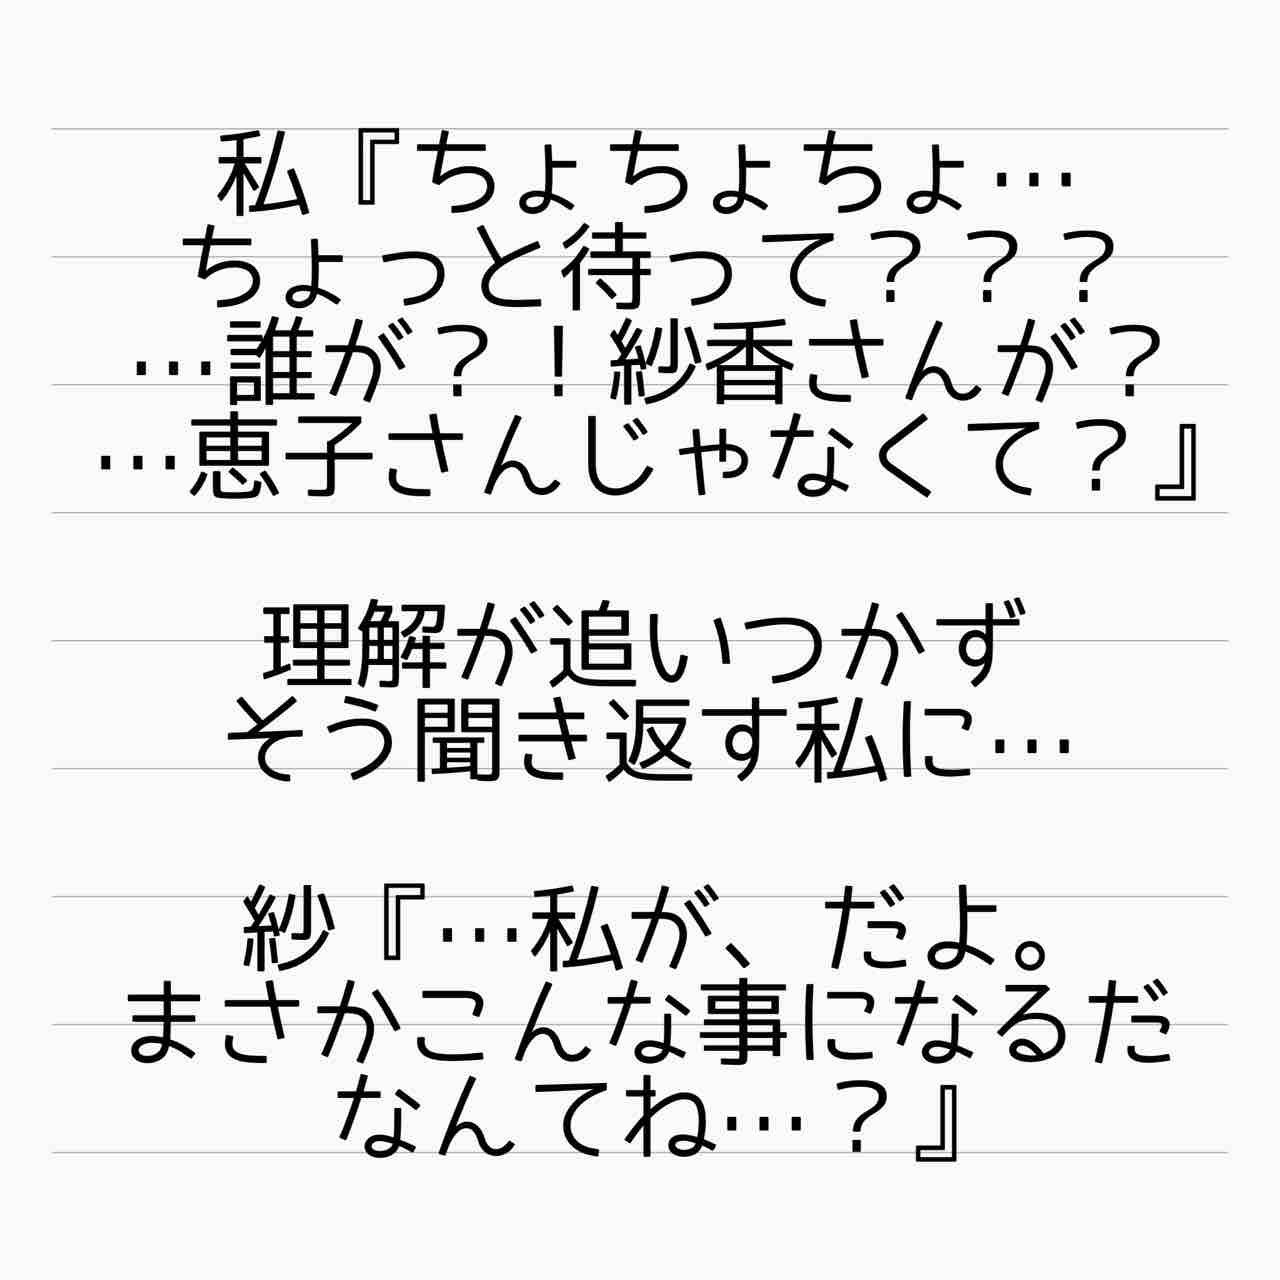 私『ちょちょちょ…
ちょっと待って？？？
…誰が？！紗香さんが？
…恵子さんじゃなくて？』
理解が追いつかず
そう聞き返す私に…
紗『…私が、だよ。
まさかこんな事になるだ
なんてね…？』